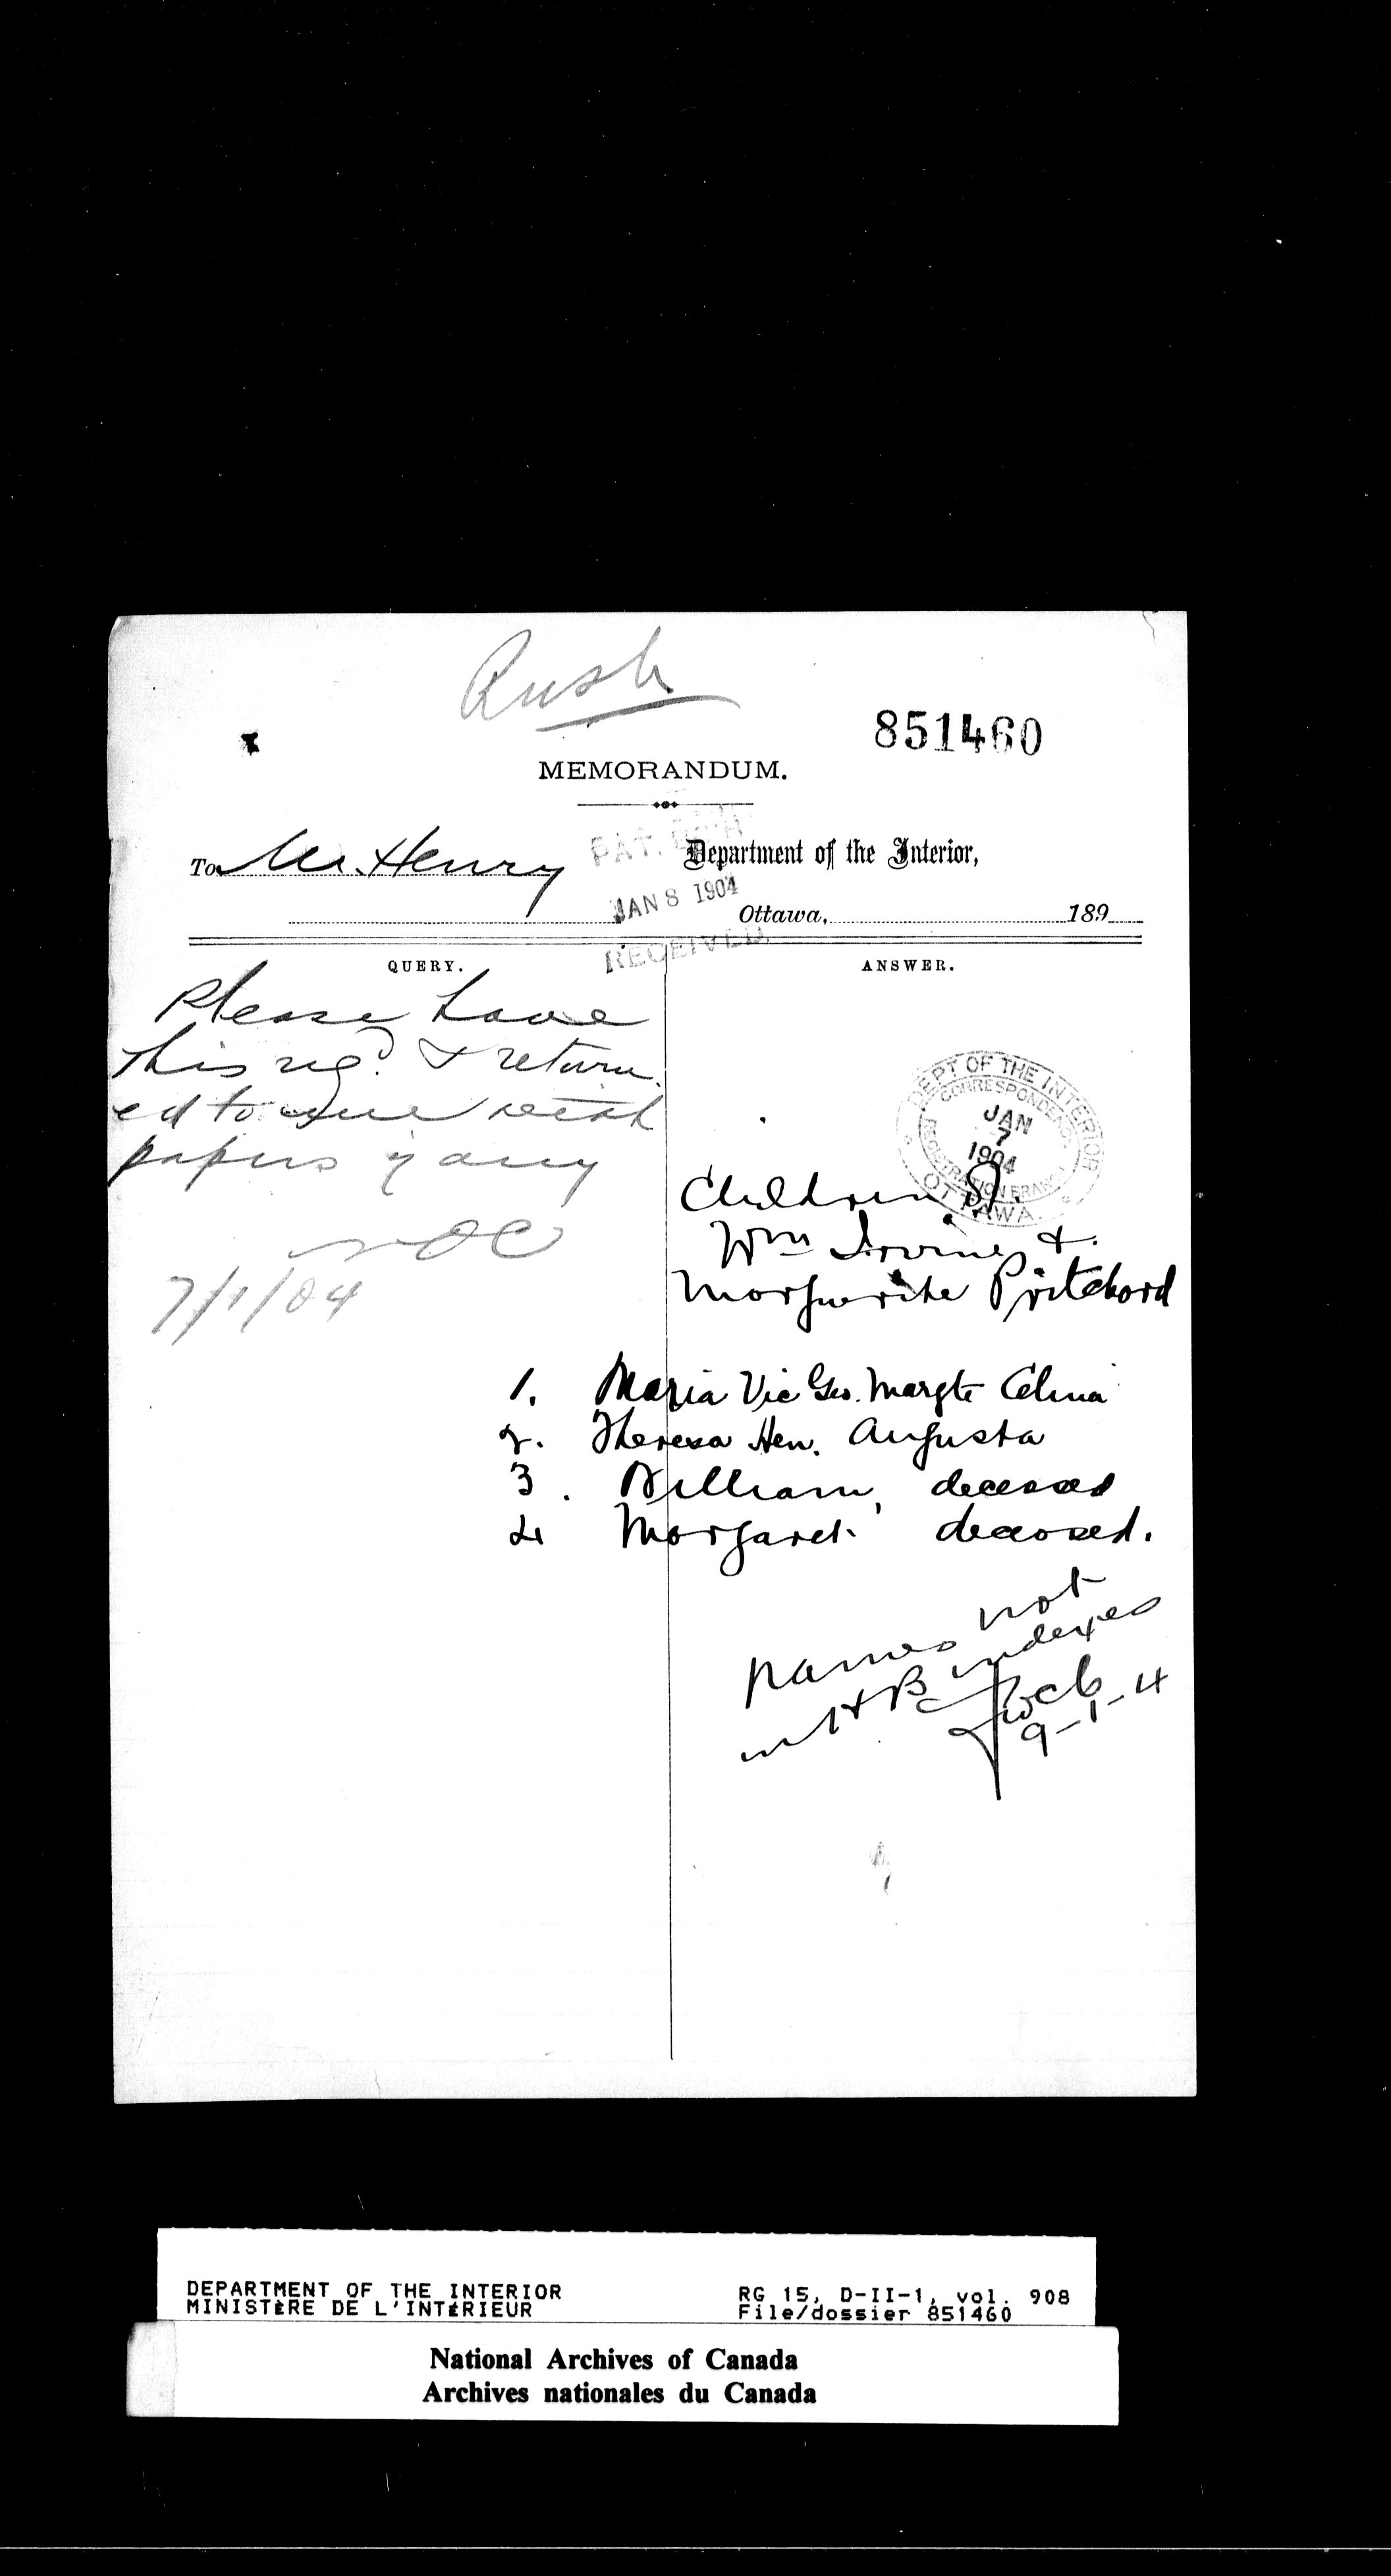 Rush
851460
MEMORANDUM.
To Mr. Henry
Department of the Interior,
PAT. BCH
JAN 8 1904
RECEIVED
Ottawa, 189
QUERY.
ANSWER.
Please have
this reg? & return
ed to me with
papers if any
7/1/04
DEPT OF THE INTERIOR
CORRESPONDENCE
JAN
7
1904
REGISTRATION BRANCH
OTTAWA
Children of
Wm Irvine &
Marguerite Pritchard
1. Maria Vic Geo. Margte Celina
2. Theresa Hen. Augusta
3. William, deceased
4 Margaret deceased.
names not
in H B indexes
9-1-4
DEPARTMENT OF THE INTERIOR
MINISTÈRE DE L'INTÉRIEUR
RG 15, D-II-1, vol. 908
File/dossier 851460
National Archives of Canada
Archives nationales du Canada